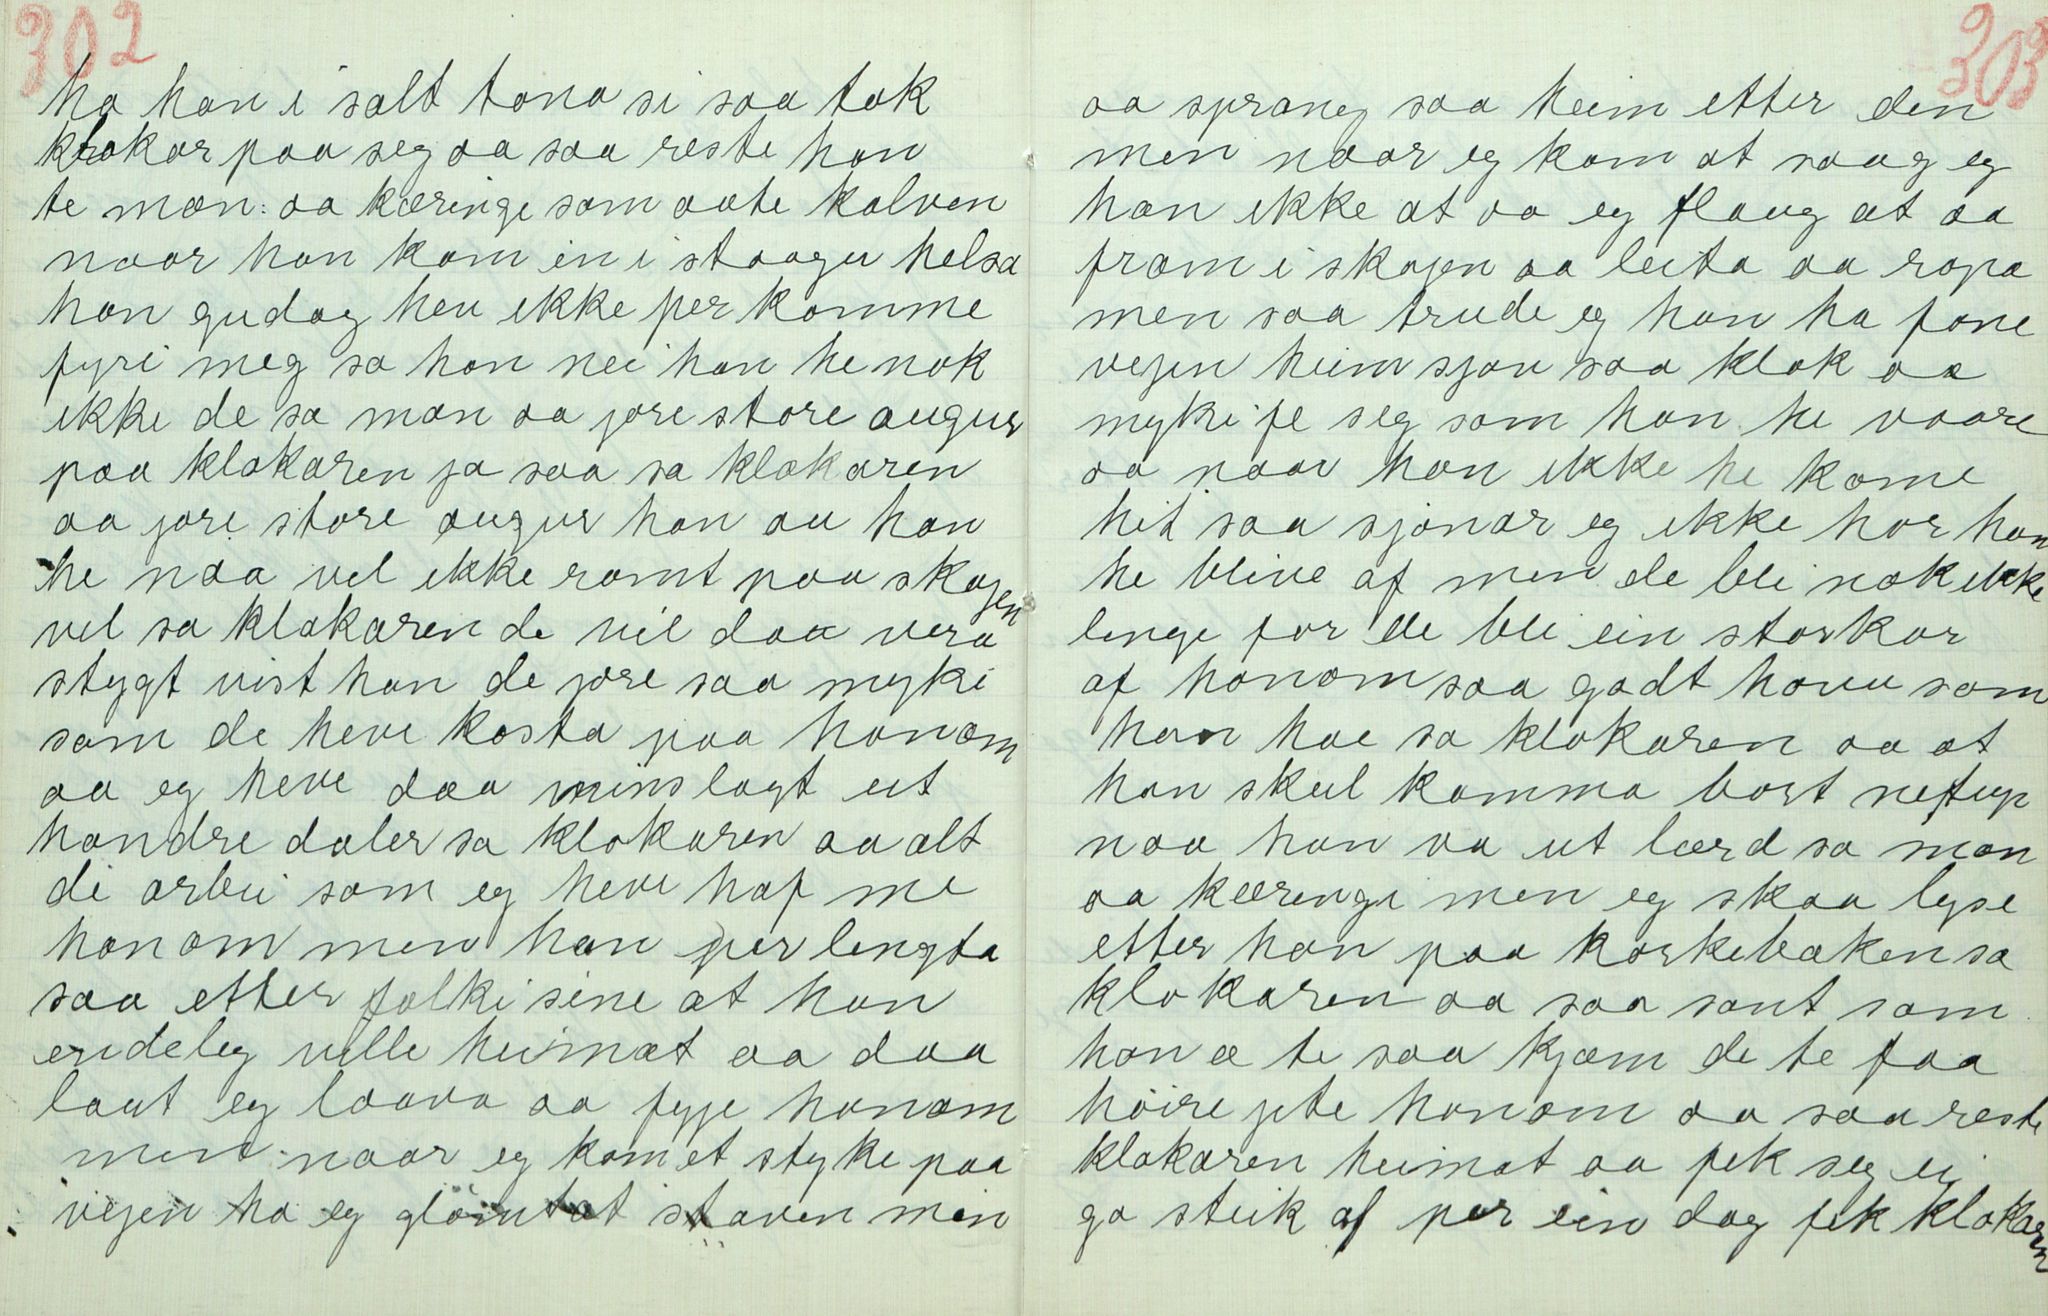 302
ha han i salt tona si saa tok
klokar paa seg aa saa reste han
te man: aa kæringe som aate kalven
naar han kom in i staagu helsa
han gudag heu ikke per komme
fyri meg sa han nei han he nok
ikke de sa man aa jore store augur
paa klokaren ja saa sa klokaren
aa jore store augur han au han
he naa vel ikke ramt paa skogen
vel sa klokaren de vil daa vera
stygt vist han de jore saa myki
som de heve kosta paa honom
aa eg heve daa minslagt ut
hondre daler sa klokaren aa alt
di arbei som eg heve haf me
honom men han per lengta
saa etter folki sine at han
endeleg ville heimat aa daa
laut eg laava aa fyje honom
men naar eg kom et styke paa
vejen ha eg glömt at staven min
303
aa sprang saa heim etter den
men naar eg kom at saag eg
han ikke at aa eg flaug at aa
fram i skojen aa leita aa ropa
men saa trude eg han ha fone
vejen heim sjøu saa klok aa
myki fe seg som han he vaare
aa naar han ikke he kome
hit saa sjönar eg ikke hor han
he blive af men de bli nok ikke
lenge for de bli ein storkar
af honom saa godt houu som
han hae sa klokaren aa at
han skul komma bort neftup
naa han va ut lærd sa man
aa kæringi men eg skaa lyse
etter han paa korkebaken sa
klokaren aa saa sant som
han æ te saa kjæm de te faa
höire jete honom aa saa reste
klokaren heimat aa fek seg ei
go steik af per ein dag fek klokaren